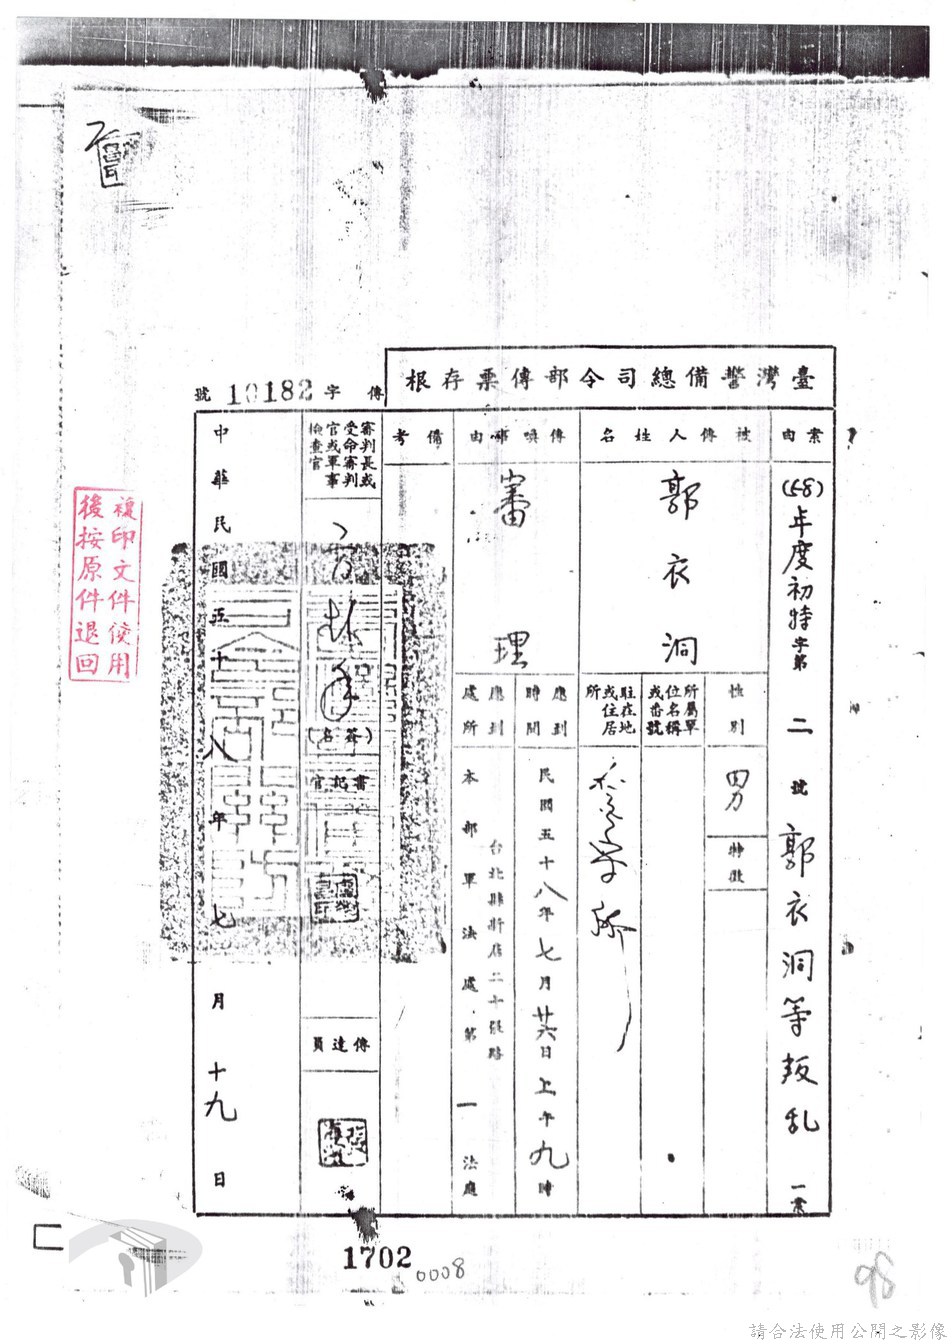 臺灣警備總司令部傳票存根
傳字 10182 號
案由
(58)年度初特字第二號郭衣洞等叛乱一案
被傳人姓名
郭衣洞
性別
男
特徵
所屬單位名稱或番號
駐在地或住居所
傳喚事由
審理
應到時間
民國五十八年七月廿六日上午九時
應到處所
台北縣新店二十張路
本部軍法處第一法庭
備考
審判長或受命審判官或軍事檢查官
(簽名)
書記官
傳達員
中華民國五十八年七月十九日
複印文件使用
後按原件退回
1702
0008
98
請合法使用公開之影像